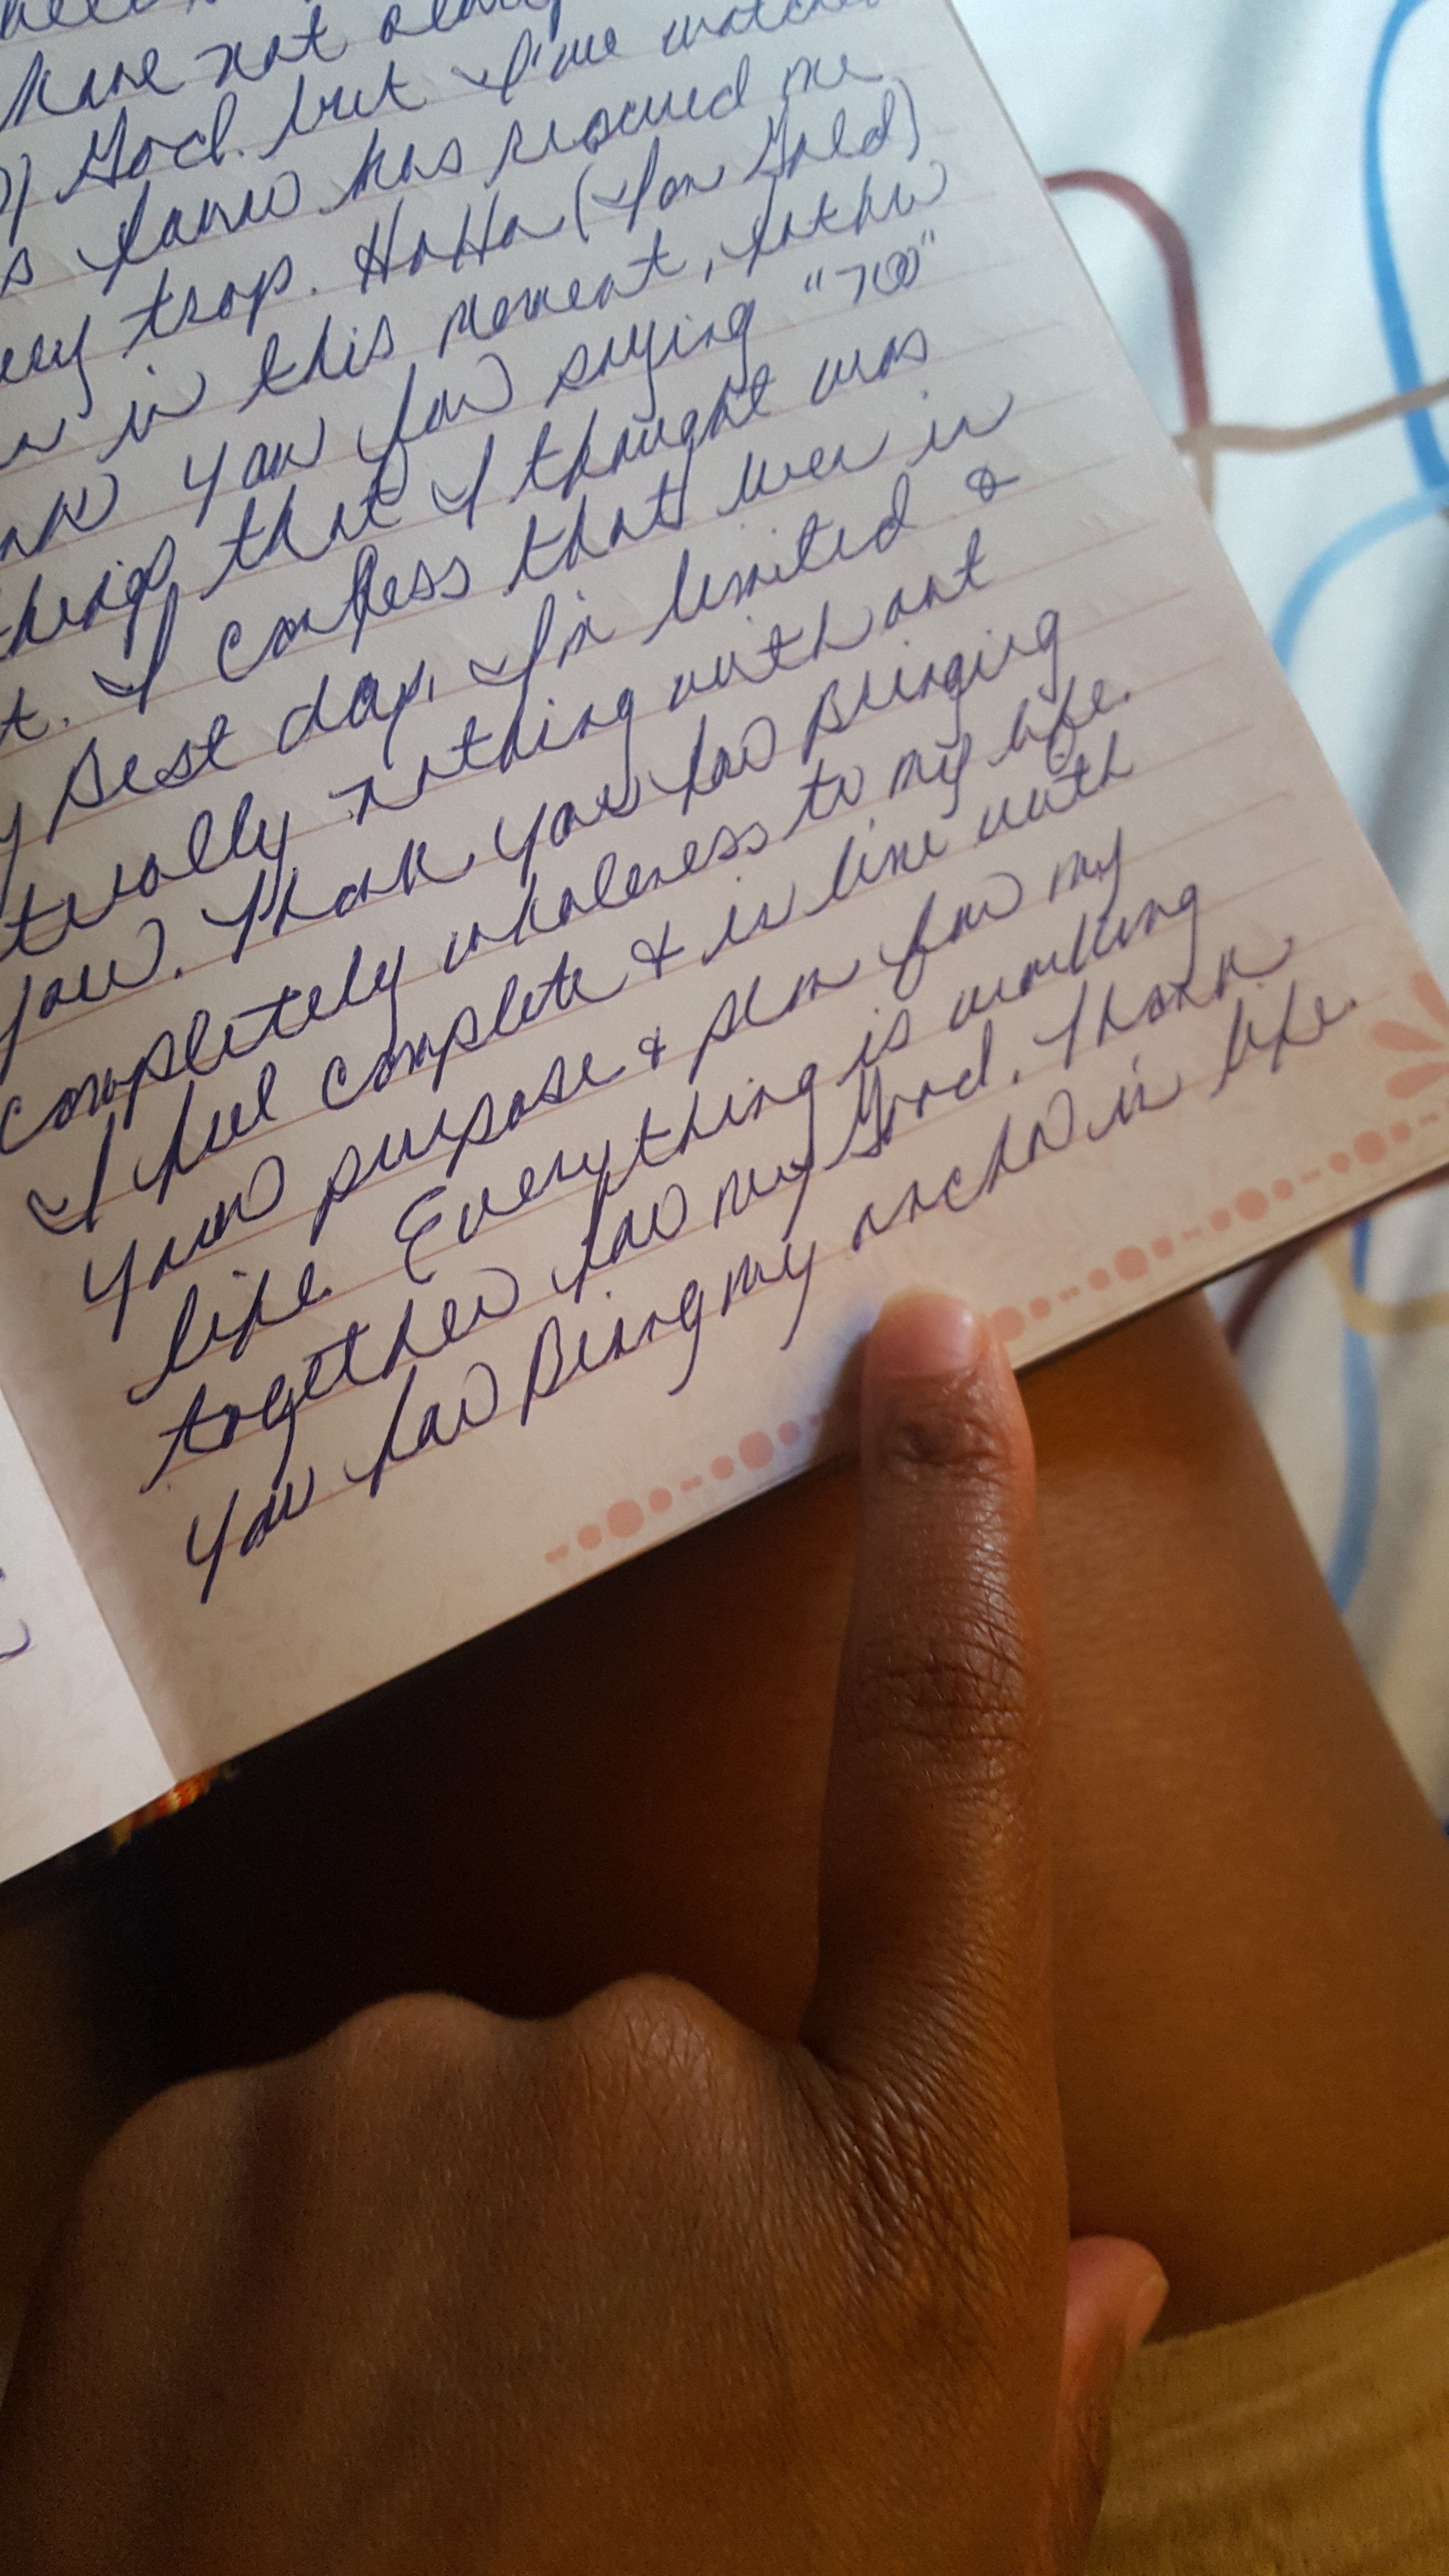 have not
God. but I've
has rescued me
trap. HaHa (I'm Gold)
in this moment, father
you for saying "no"
things that I thought was
I confess that even in
Best day, I'm limited &
nothing without
you. Thank you for Bringing
completely wholeness to my life.
I feel complete & in line with
your purpose & plan for my
life. Everything is working
together for my Good. Thank
you for Being my anchor in life.